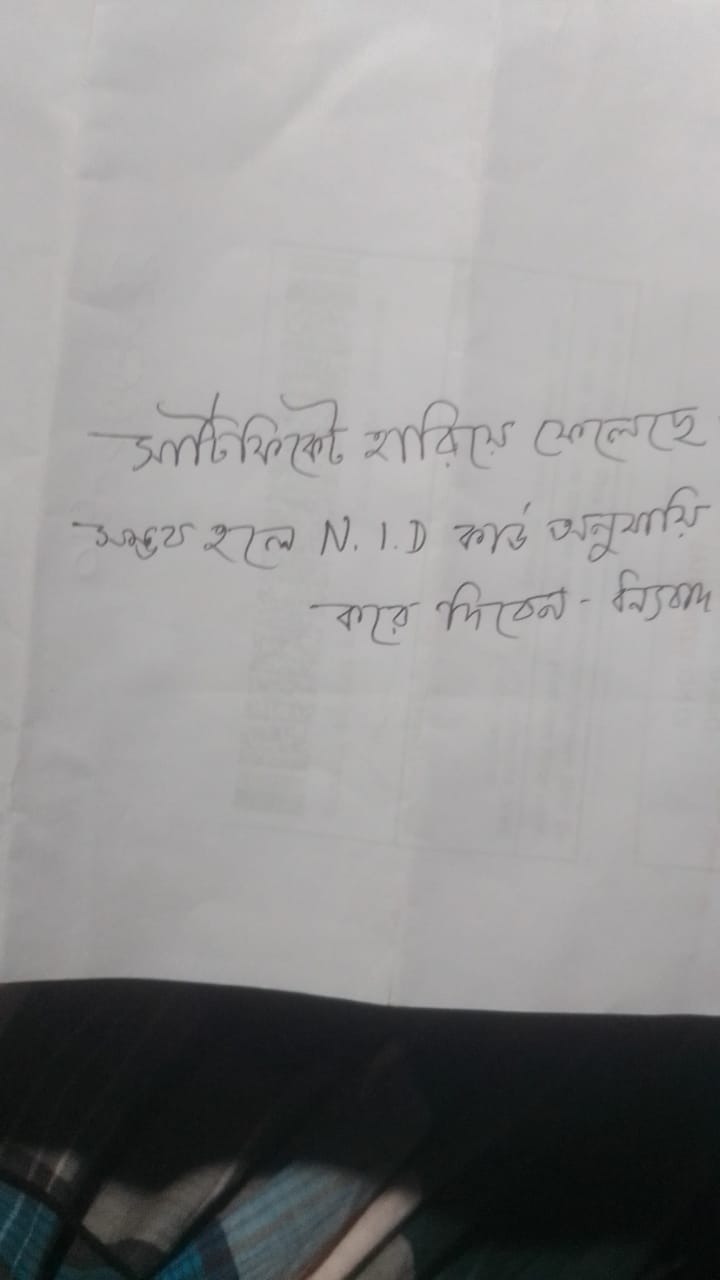 সার্টিফিকেট হারিয়ে ফেলেছে
সম্ভব হলে N.I.D কার্ড অনুযায়ি
করে দিবেন - ধন্যবাদ